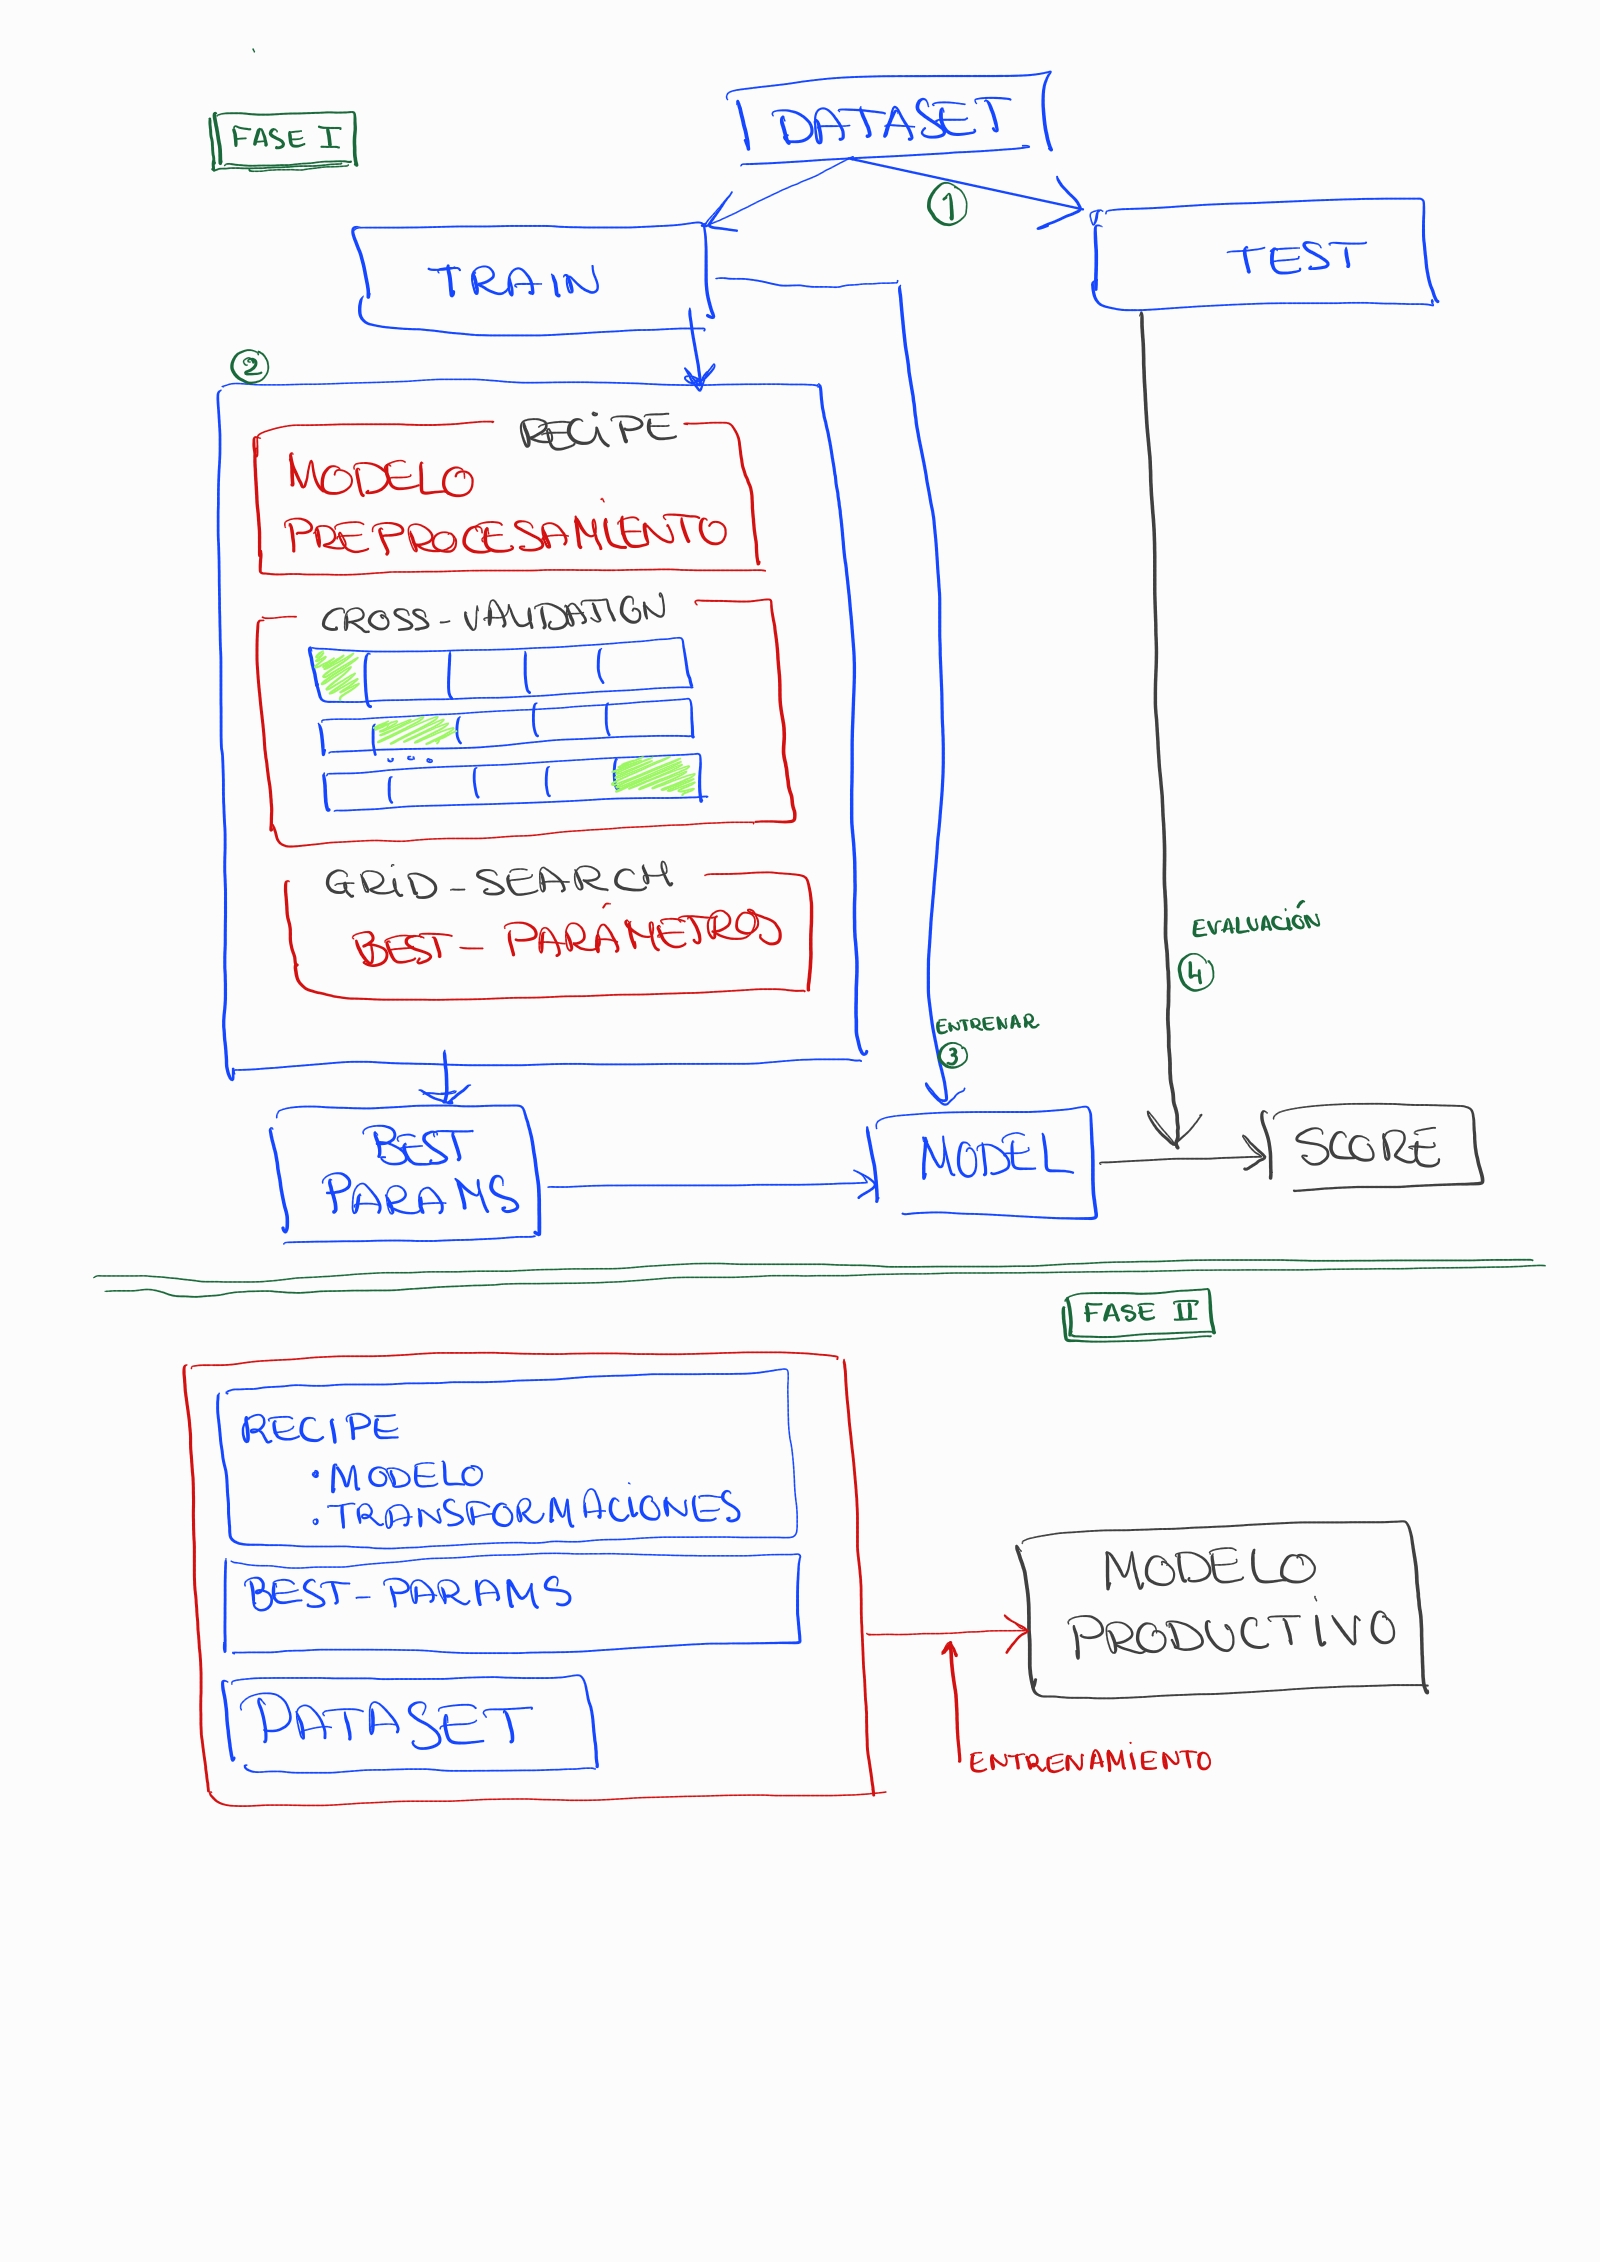 FASE I
DATASET
1
TRAIN
TEST
2
RECIPE
MODELO
PREPROCESAMIENTO
CROSS-VALIDATION
...
GRID-SEARCH
BEST-PARÁMETROS
EVALUACIÓN
4
ENTRENAR
3
BEST
PARAMS
MODEL
SCORE
FASE II
RECIPE
• MODELO
• TRANSFORMACIONES
BEST-PARAMS
DATASET
MODELO
PRODUCTIVO
ENTRENAMIENTO